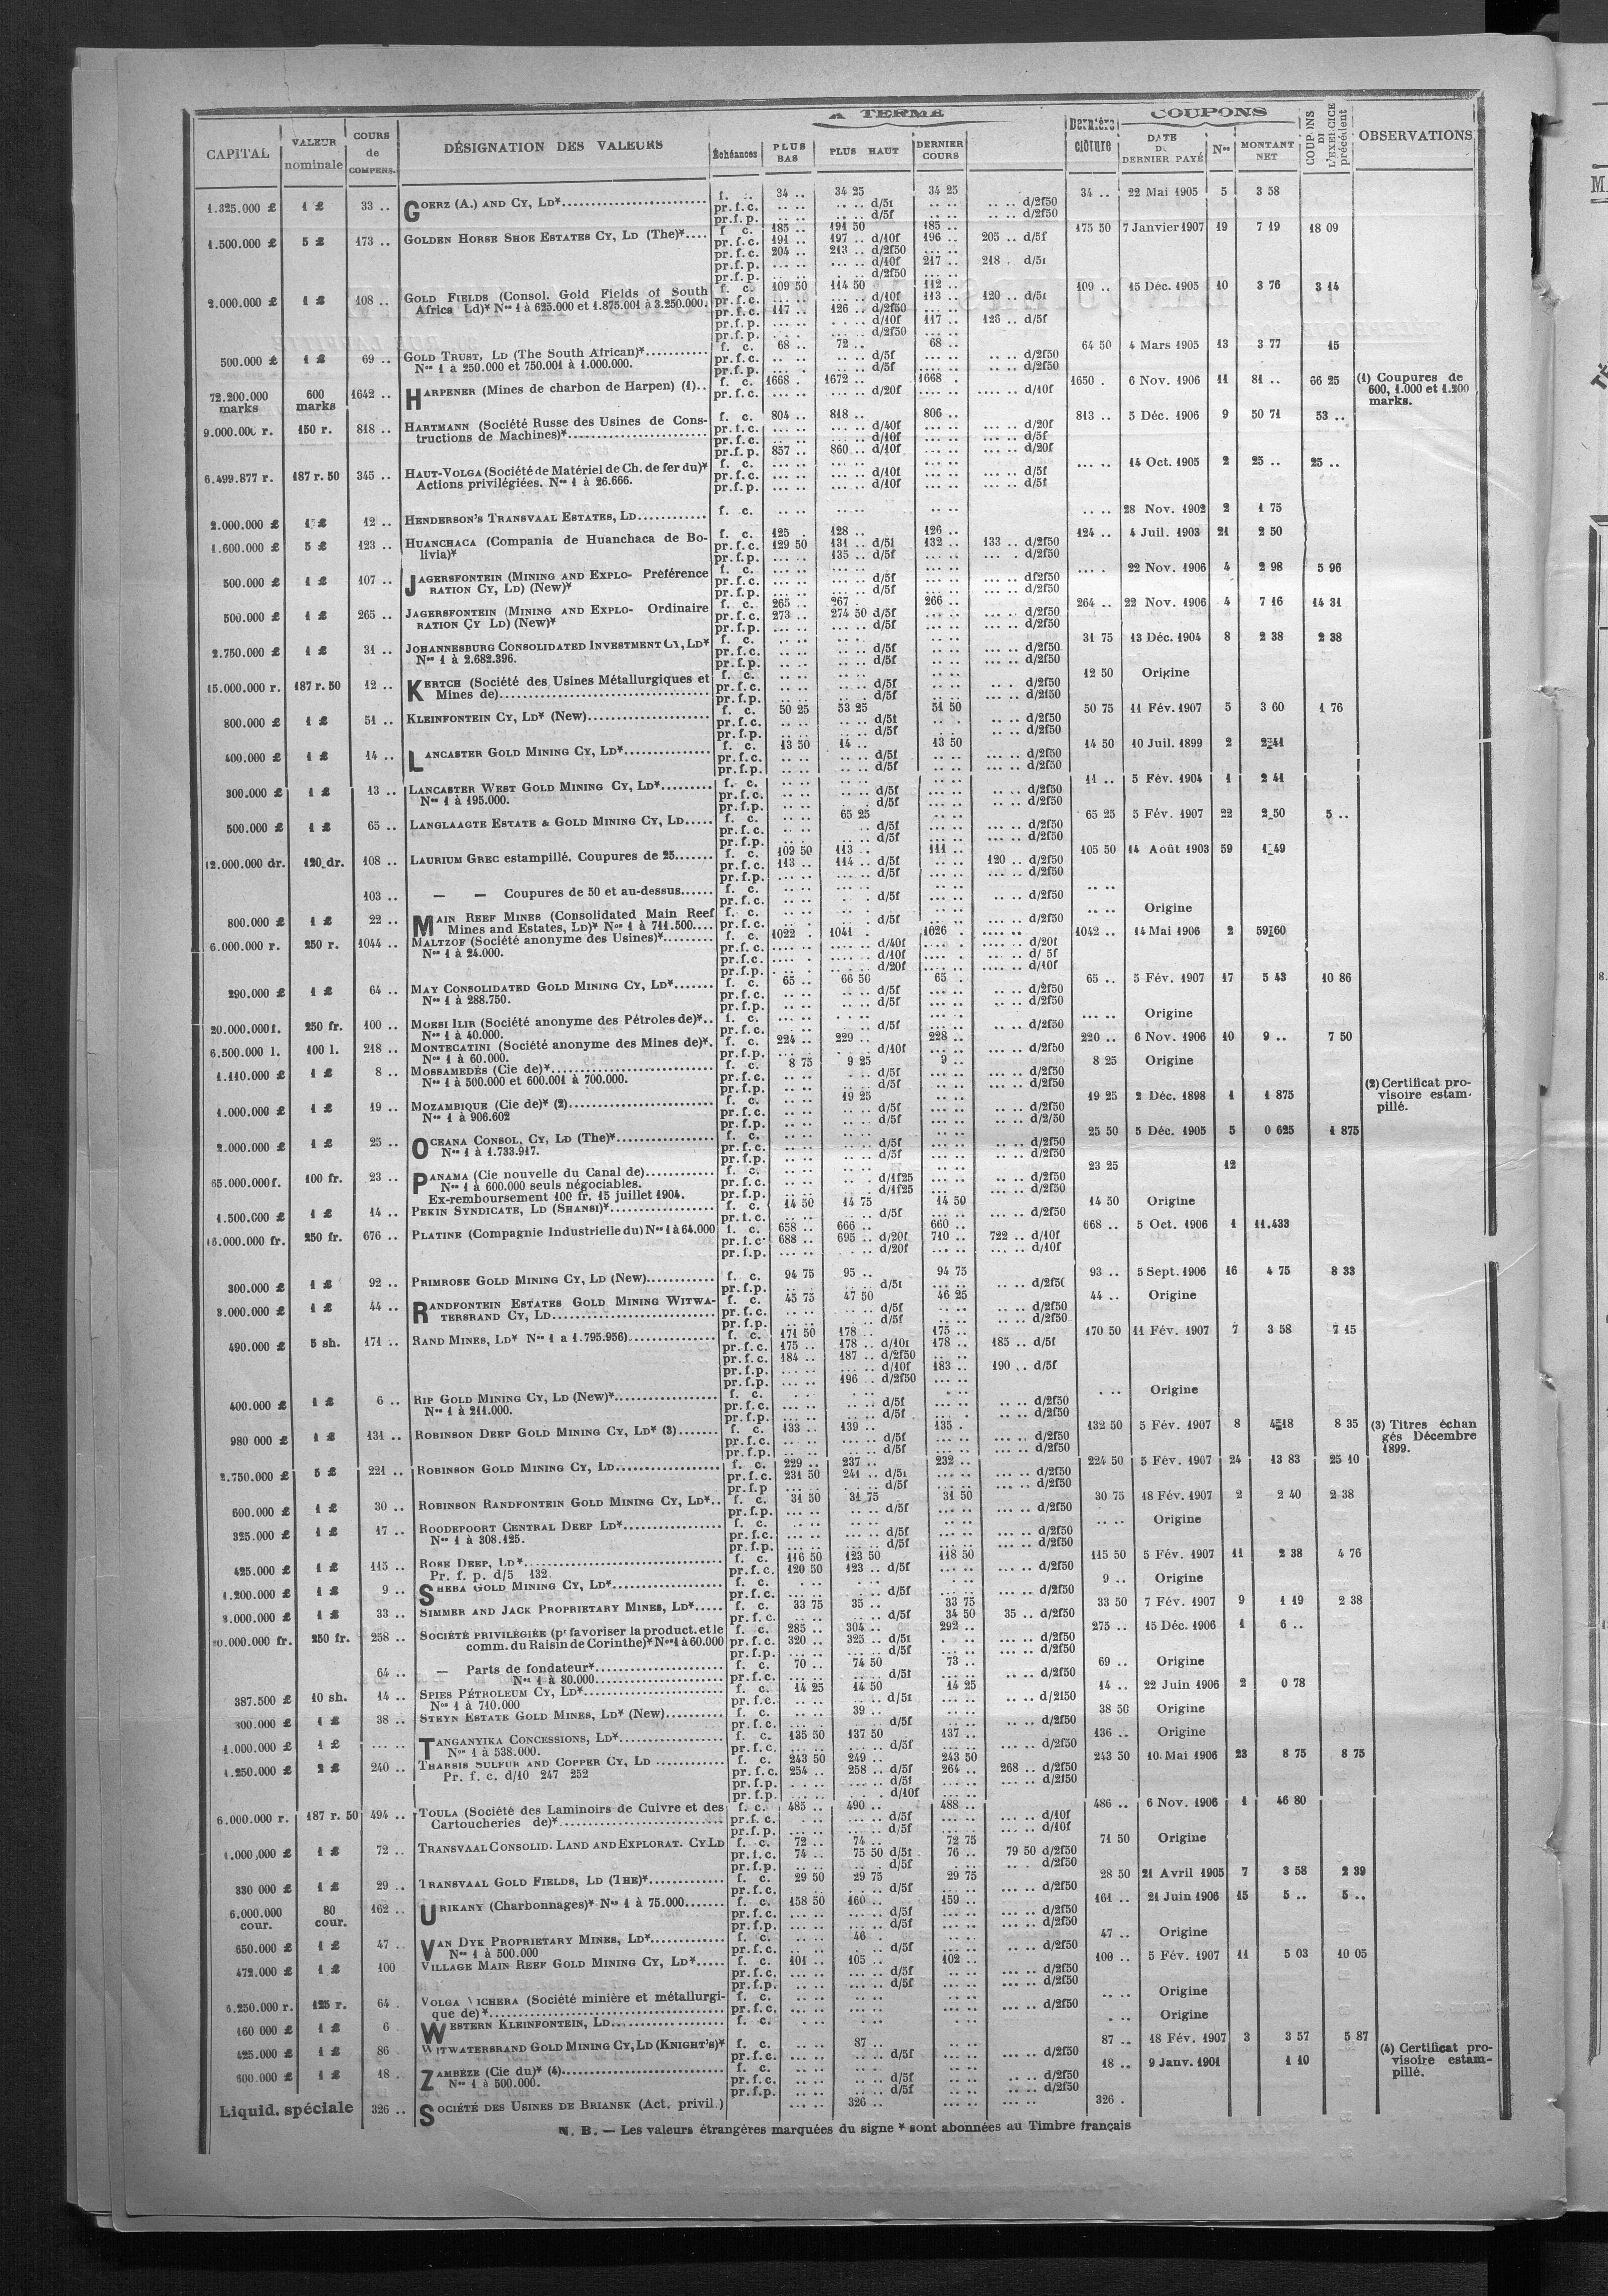 A TERME
COUPONS
CAPITAL
VALEUR nominale
COURS de COMPENS.
DÉSIGNATION DES VALEURS
Échéances
PLUS BAS
PLUS HAUT
DERNIER COURS
Dernière clôture
DATE DU DERNIER PAYÉ
Nos
MONTANT NET
COUPONS DE L'EXERCICE précédent
OBSERVATIONS
1.325.000 £ 1 £ 33 .. GOERZ (A.) AND CY, LD* f. c. 34 .. 34 25 34 25 34 .. 22 Mai 1905 5 3 58
pr.f.c. .. .. .. .. d/5f .. .. .. .. d/2f50
pr.f.p. .. .. .. .. d/5f .. .. .. .. d/2f50
1.500.000 £ 5 £ 173 .. GOLDEN HORSE SHOE ESTATES CY, LD (The)* f. c. 185 .. 191 50 185 .. 175 50 7 Janvier 1907 19 7 19 18 09
pr.f.c. 191 .. 197 .. d/10f 196 .. 205 .. d/5f
pr.f.c. 204 .. 213 .. d/2f50
pr.f.p. ... .. ... .. d/10f 217 .. 218 . d/5f
pr.f.p. d/2f50
2.000.000 £ 1 £ 108 .. GOLD FIELDS (Consol. Gold Fields of South f. c. 109 50 114 50 112 .. 109 .. 15 Déc. 1905 10 3 76 3 14
Africa Ld)* Nos 1 à 625.000 et 1.875.001 à 3.250.000. pr.f.c. d/10f 113 .. 120 .. d/5f
pr.f.c. 117 .. 126 .. d/2f50
pr.f.p. d/10f 117 .. 126 .. d/5f
pr.f.p. d/2f50
500.000 £ 1 £ 69 .. GOLD TRUST, LD (The South African)* f. c. 68 .. 72 .. 68 .. 64 50 4 Mars 1905 13 3 77 15
Nos 1 à 250.000 et 750.001 à 1.000.000. pr.f.c. d/5f d/2f50
pr.f.p. d/5f d/2f50
72.200.000 marks 600 marks 1642 .. HARPENER (Mines de charbon de Harpen) (1).. f. c. 1668 . 1672 .. 1668 . 1650 . 6 Nov. 1906 11 81 .. 66 25 (1) Coupures de 600, 1.000 et 1.200 marks.
pr.f.c. d/20f d/10f
9.000.000 r. 150 r. 818 .. HARTMANN (Société Russe des Usines de Cons- f. c. 804 .. 818 .. 806 .. 813 .. 5 Déc. 1906 9 50 71 53 ..
tructions de Machines)* pr.f.c. d/40f d/20f
pr.f.c. d/10f d/5f
pr.f.p. 857 .. 860 .. d/40f d/20f
6.499.877 r. 187 r. 50 345 .. HAUT-VOLGA (Société de Matériel de Ch. de fer du)* f. c. 14 Oct. 1905 2 25 .. 25 ..
Actions privilégiées. Nos 1 à 26.666. pr.f.c. d/10f d/5f
pr.f.p. d/10f d/5f
2.000.000 £ 1 £ 12 .. HENDERSON'S TRANSVAAL ESTATES, LD f. c. 28 Nov. 1902 2 1 75
1.600.000 £ 5 £ 123 .. HUANCHACA (Compania de Huanchaca de Bo- f. c. 125 . 128 .. 126 .. 124 .. 4 Juil. 1903 21 2 50
livia)* pr.f.c. 129 50 131 .. d/5f 132 .. 133 .. d/2f50
pr.f.p. 135 .. d/5f d/2f50
500.000 £ 1 £ 107 .. JAGERSFONTEIN (MINING AND EXPLO- Préférence f. c. 22 Nov. 1906 4 2 98 5 96
RATION CY, LD) (New)* pr.f.c. d/5f df2f50
pr.f.p. d/5f d/2f50
500.000 £ 1 £ 265 .. JAGERSFONTEIN (MINING AND EXPLO- Ordinaire f. c. 265 .. 267 . 266 .. 264 .. 22 Nov. 1906 4 7 16 14 31
RATION CY LD) (New)* pr.f.c. 273 .. 274 50 d/5f d/2f50
pr.f.p. d/5f d/2f50
2.750.000 £ 1 £ 31 .. JOHANNESBURG CONSOLIDATED INVESTMENT CY, LD* f. c. 31 75 13 Déc. 1904 8 2 38 2 38
Nos 1 à 2.682.396. pr.f.c. d/5f d/2f50
pr.f.p. d/5f d/2f50
15.000.000 r. 187 r. 50 12 .. KERTCH (Société des Usines Métallurgiques et f. c. 12 50 Origine
Mines de) pr.f.c. d/5f d/2f50
pr.f.p. d/5f d/2f50
800.000 £ 1 £ 51 .. KLEINFONTEIN CY, LD* (New) f. c. 50 25 53 25 51 50 50 75 11 Fév. 1907 5 3 60 1 76
pr.f.c. d/5f d/2f50
pr.f.p. d/5f d/2f50
400.000 £ 1 £ 14 .. LANCASTER GOLD MINING CY, LD* f. c. 13 50 14 .. 13 50 14 50 10 Juil. 1899 2 2 41
pr.f.c. d/5f d/2f50
pr.f.p. d/5f d/2f50
300.000 £ 1 £ 13 .. LANCASTER WEST GOLD MINING CY, LD* f. c. 11 .. 5 Fév. 1904 1 2 41
Nos 1 à 195.000. pr.f.c. d/5f d/2f50
pr.f.p. d/5f d/2f50
500.000 £ 1 £ 65 .. LANGLAAGTE ESTATE & GOLD MINING CY, LD f. c. 65 25 65 25 5 Fév. 1907 22 2 50 5 ..
pr.f.c. d/5f d/2f50
pr.f.p. d/5f d/2f50
12.000.000 dr. 120 dr. 108 .. LAURIUM GREC estampillé. Coupures de 25 f. c. 109 50 113 .. 111 .. 105 50 14 Août 1903 59 1 49
pr.f.c. 113 .. 114 .. d/5f 120 .. d/2f50
pr.f.p. d/5f d/2f50
103 .. — — Coupures de 50 et au-dessus f. c.
pr.f.c. d/5f d/2f50
800.000 £ 1 £ 22 .. MAIN REEF MINES (Consolidated Main Reef f. c. Origine
Mines and Estates, LD)* Nos 1 à 711.500 pr.f.c. d/5f d/2f50
6.000.000 r. 250 r. 1044 .. MALTZOF (Société anonyme des Usines)* f. c. 1022 . 1041 . 1026 1042 .. 14 Mai 1906 2 59 60
Nos 1 à 24.000. pr.f.c. d/40f d/20f
pr.f.c. d/10f d/ 5f
pr.f.p. d/20f d/10f
290.000 £ 1 £ 64 .. MAY CONSOLIDATED GOLD MINING CY, LD* f. c. 65 .. 66 50 65 . 65 .. 5 Fév. 1907 17 5 43 10 86
Nos 1 à 288.750. pr.f.c. d/5f d/2f50
pr.f.p. d/5f d/2f50
20.000.000 f. 250 fr. 100 .. MOESI ILIR (Société anonyme des Pétroles de)* f. c. Origine
Nos 1 à 40.000. pr.f.c. d/5f d/2f50
6.500.000 l. 100 l. 218 .. MONTECATINI (Société anonyme des Mines de)* f. c. 224 .. 229 .. 228 .. 220 .. 6 Nov. 1906 10 9 .. 7 50
Nos 1 à 60.000. pr.f.p. d/10f d/2f50
1.110.000 £ 1 £ 8 .. MOSSAMEDÈS (Cie de)* f. c. 8 75 9 25 9 .. 8 25 Origine
Nos 1 à 500.000 et 600.001 à 700.000. pr.f.c. d/5f d/2f50
pr.f.p. d/5f d/2f50
1.000.000 £ 1 £ 19 .. MOZAMBIQUE (Cie de)* (2) f. c. 19 25 19 25 2 Déc. 1898 1 1 875 (2) Certificat provisoire estampillé.
Nos 1 à 906.602 pr.f.c. d/5f d/2f50
pr.f.p. d/5f d/2/50
2.000.000 £ 1 £ 25 .. OCEANA CONSOL. CY, LD (The)* f. c. 25 50 5 Déc. 1905 5 0 625 1 875
Nos 1 à 1.733.917. pr.f.c. d/5f d/2f50
pr.f.p. d/5f d/2f50
65.000.000 f. 100 fr. 23 .. PANAMA (Cie nouvelle du Canal de) f. c. 23 25 12
Nos 1 à 600.000 seuls négociables. pr.f.c. d/1f25 d/2f50
Ex-remboursement 100 fr. 15 juillet 1904. pr.f.p. d/1f25 d/2f50
1.500.000 £ 1 £ 14 .. PEKIN SYNDICATE, LD (SHANSI)* f. c. 14 50 14 75 14 50 14 50 Origine
pr.f.c. d/5f d/2f50
16.000.000 fr. 250 fr. 676 .. PLATINE (Compagnie Industrielle du) Nos 1 à 64.000 f. c. 658 .. 666 .. 660 .. 668 .. 5 Oct. 1906 1 11.433
pr.f.c. 688 .. 695 .. d/20f 710 .. 722 .. d/10f
pr.f.p. d/20f d/10f
300.000 £ 1 £ 92 .. PRIMROSE GOLD MINING CY, LD (New) f. c. 94 75 95 .. 94 75 93 .. 5 Sept. 1906 16 4 75 8 33
pr.f.p. d/5f d/2f50
3.000.000 £ 1 £ 44 .. RANDFONTEIN ESTATES GOLD MINING WITWA- f. c. 45 75 47 50 46 25 44 .. Origine
TERSRAND CY, LD pr.f.c. d/5f d/2f50
pr.f.p. d/5f d/2f50
490.000 £ 5 sh. 171 .. RAND MINES, LD* Nos 1 a 1.795.956) f. c. 171 50 178 .. 175 .. 170 50 11 Fév. 1907 7 3 58 7 15
pr.f.c. 175 .. 178 .. d/10f 178 .. 185 .. d/5f
pr.f.c. 184 .. 187 .. d/2f50
pr.f.p. d/10f 183 .. 190 .. d/5f
pr.f.p. 196 .. d/2f50
400.000 £ 1 £ 6 .. RIP GOLD MINING CY, LD (New)* f. c. Origine
Nos 1 à 211.000. pr.f.c. d/5f d/2f50
pr.f.p. d/5f d/2f50
980 000 £ 1 £ 131 .. ROBINSON DEEP GOLD MINING CY, LD* (3) f. c. 133 .. 139 .. 135 . 132 50 5 Fév. 1907 8 4 18 8 35 (3) Titres échangés Décembre 1899.
pr.f.c. d/5f d/2f50
pr.f.p. d/5f d/2f50
2.750.000 £ 5 £ 221 .. ROBINSON GOLD MINING CY, LD f. c. 229 .. 237 .. 232 .. 224 50 5 Fév. 1907 24 13 83 25 10
pr.f.c. 231 50 241 .. d/5f d/2f50
pr.f.p d/5f d/2f50
600.000 £ 1 £ 30 .. ROBINSON RANDFONTEIN GOLD MINING CY, LD* f. c. 31 50 31 75 31 50 30 75 18 Fév. 1907 2 2 40 2 38
pr.f.p. d/5f d/2f50
325.000 £ 1 £ 17 .. ROODEPOORT CENTRAL DEEP LD* f. c. Origine
Nos 1 à 308.125. pr.f.c. d/5f d/2f50
pr.f.p. d/5f d/2f50
425.000 £ 1 £ 115 .. ROSE DEEP, LD* f. c. 116 50 123 50 118 50 115 50 5 Fév. 1907 11 2 38 4 76
Pr. f. p. d/5 132. pr.f.c. 120 50 123 .. d/5f d/2f50
1.200.000 £ 1 £ 9 .. SHEBA GOLD MINING CY, LD* f. c. 9 .. Origine
pr.f.c. d/5f d/2f50
3.000.000 £ 1 £ 33 .. SIMMER AND JACK PROPRIETARY MINES, LD* f. c. 33 75 35 .. 33 75 33 50 7 Fév. 1907 9 1 19 2 38
pr.f.c. d/5f 34 50 35 .. d/2f50
20.000.000 fr. 250 fr. 258 .. SOCIÉTÉ PRIVILÉGIÉE (pr favoriser la product. et le f. c. 285 .. 304 .. 292 .. 275 .. 15 Déc. 1906 1 6 ..
comm. du Raisin de Corinthe)* Nos 1 à 60.000 pr.f.c. 320 .. 325 .. d/5f d/2f50
pr.f.p. d/5f d/2f50
64 .. — Parts de fondateur* f. c. 70 .. 74 50 73 .. 69 .. Origine
Nos 1 à 80.000 pr.f.c. d/5f d/2f50
387.500 £ 10 sh. 14 .. SPIES PÉTROLEUM CY, LD* f. c. 14 25 14 50 14 25 14 .. 22 Juin 1906 2 0 78
Nos 1 à 710.000 pr.f.c. d/5f d/2f50
300.000 £ 1 £ 38 .. STEYN ESTATE GOLD MINES, LD* (New) f. c. 39 .. 38 50 Origine
pr.f.c. d/5f d/2f50
1.000.000 £ 1 £ TANGANYIKA CONCESSIONS, LD* f. c. 135 50 137 50 137 .. 136 .. Origine
Nos 1 à 538.000. pr.f.c. d/5f d/2f50
1.250.000 £ 2 £ 240 .. THARSIS SULFUR AND COPPER CY, LD f. c. 243 50 249 .. 243 50 243 50 10 Mai 1906 23 8 75 8 75
Pr. f. c. d/10 247 252 pr.f.c. 254 .. 258 .. d/5f 264 .. 268 .. d/2f50
pr.f.p. d/5f d/2f50
pr.f.p. d/10f
6.000.000 r. 187 r. 50 494 .. TOULA (Société des Laminoirs de Cuivre et des f. c. 485 .. 490 .. 488 .. 486 .. 6 Nov. 1906 1 46 80
Cartoucheries de)* pr.f.c. d/5f d/10f
pr.f.p. d/5f d/10f
1.000,000 £ 1 £ 72 .. TRANSVAAL CONSOLID. LAND AND EXPLORAT. CY LD f. c. 72 .. 74 .. 72 75 71 50 Origine
pr.f.c. 74 .. 75 50 d/5f 76 .. 79 50 d/2f50
pr.f.p. d/5f d/2f50
330 000 £ 1 £ 29 .. TRANSVAAL GOLD FIELDS, LD (THE)* f. c. 29 50 29 75 29 75 28 50 21 Avril 1905 7 3 58 2 39
pr.f.c. d/5f d/2f50
6.000.000 cour. 80 cour. 162 .. URIKANY (Charbonnages)* Nos 1 à 75.000 f. c. 158 50 160 .. 159 .. 161 .. 21 Juin 1906 15 5 .. 5 ..
pr.f.c. d/5f d/2f50
pr.f.p. d/5f d/2f50
650.000 £ 1 £ 47 .. VAN DYK PROPRIETARY MINES, LD* f. c. 46 . 47 .. Origine
Nos 1 à 500.000 pr.f.c. d/5f d/2f50
472.000 £ 1 £ 100 VILLAGE MAIN REEF GOLD MINING CY, LD* f. c. 101 .. 105 .. 102 .. 100 .. 5 Fév. 1907 11 5 03 10 05
pr.f.c. d/5f d/2f50
pr.f.p. d/5f d/2f50
6.250.000 r. 125 r. 64 . VOLGA VICHERA (Société minière et métallurgi- f. c. Origine
que de)* pr.f.c. d/2f50
160 000 £ 1 £ 6 WESTERN KLEINFONTEIN, LD f. c. Origine
425.000 £ 1 £ 86 WITWATERSRAND GOLD MINING CY, LD (KNIGHT'S)* f. c. 87 .. 87 .. 18 Fév. 1907 3 3 57 5 87
pr.f.c. d/5f d/2f50
600.000 £ 1 £ 18 .. ZAMBÈZE (Cie du)* (4) f. c. 18 .. 9 Janv. 1901 1 10 (4) Certificat provisoire estampillé.
Nos 1 à 500.000. pr.f.c. d/5f d/2f50
pr.f.p. d/5f d/2f50
Liquid. spéciale 326 .. SOCIÉTÉ DES USINES DE BRIANSK (Act. privil.) 326 .. 326 .
N. B. — Les valeurs étrangères marquées du signe * sont abonnées au Timbre français